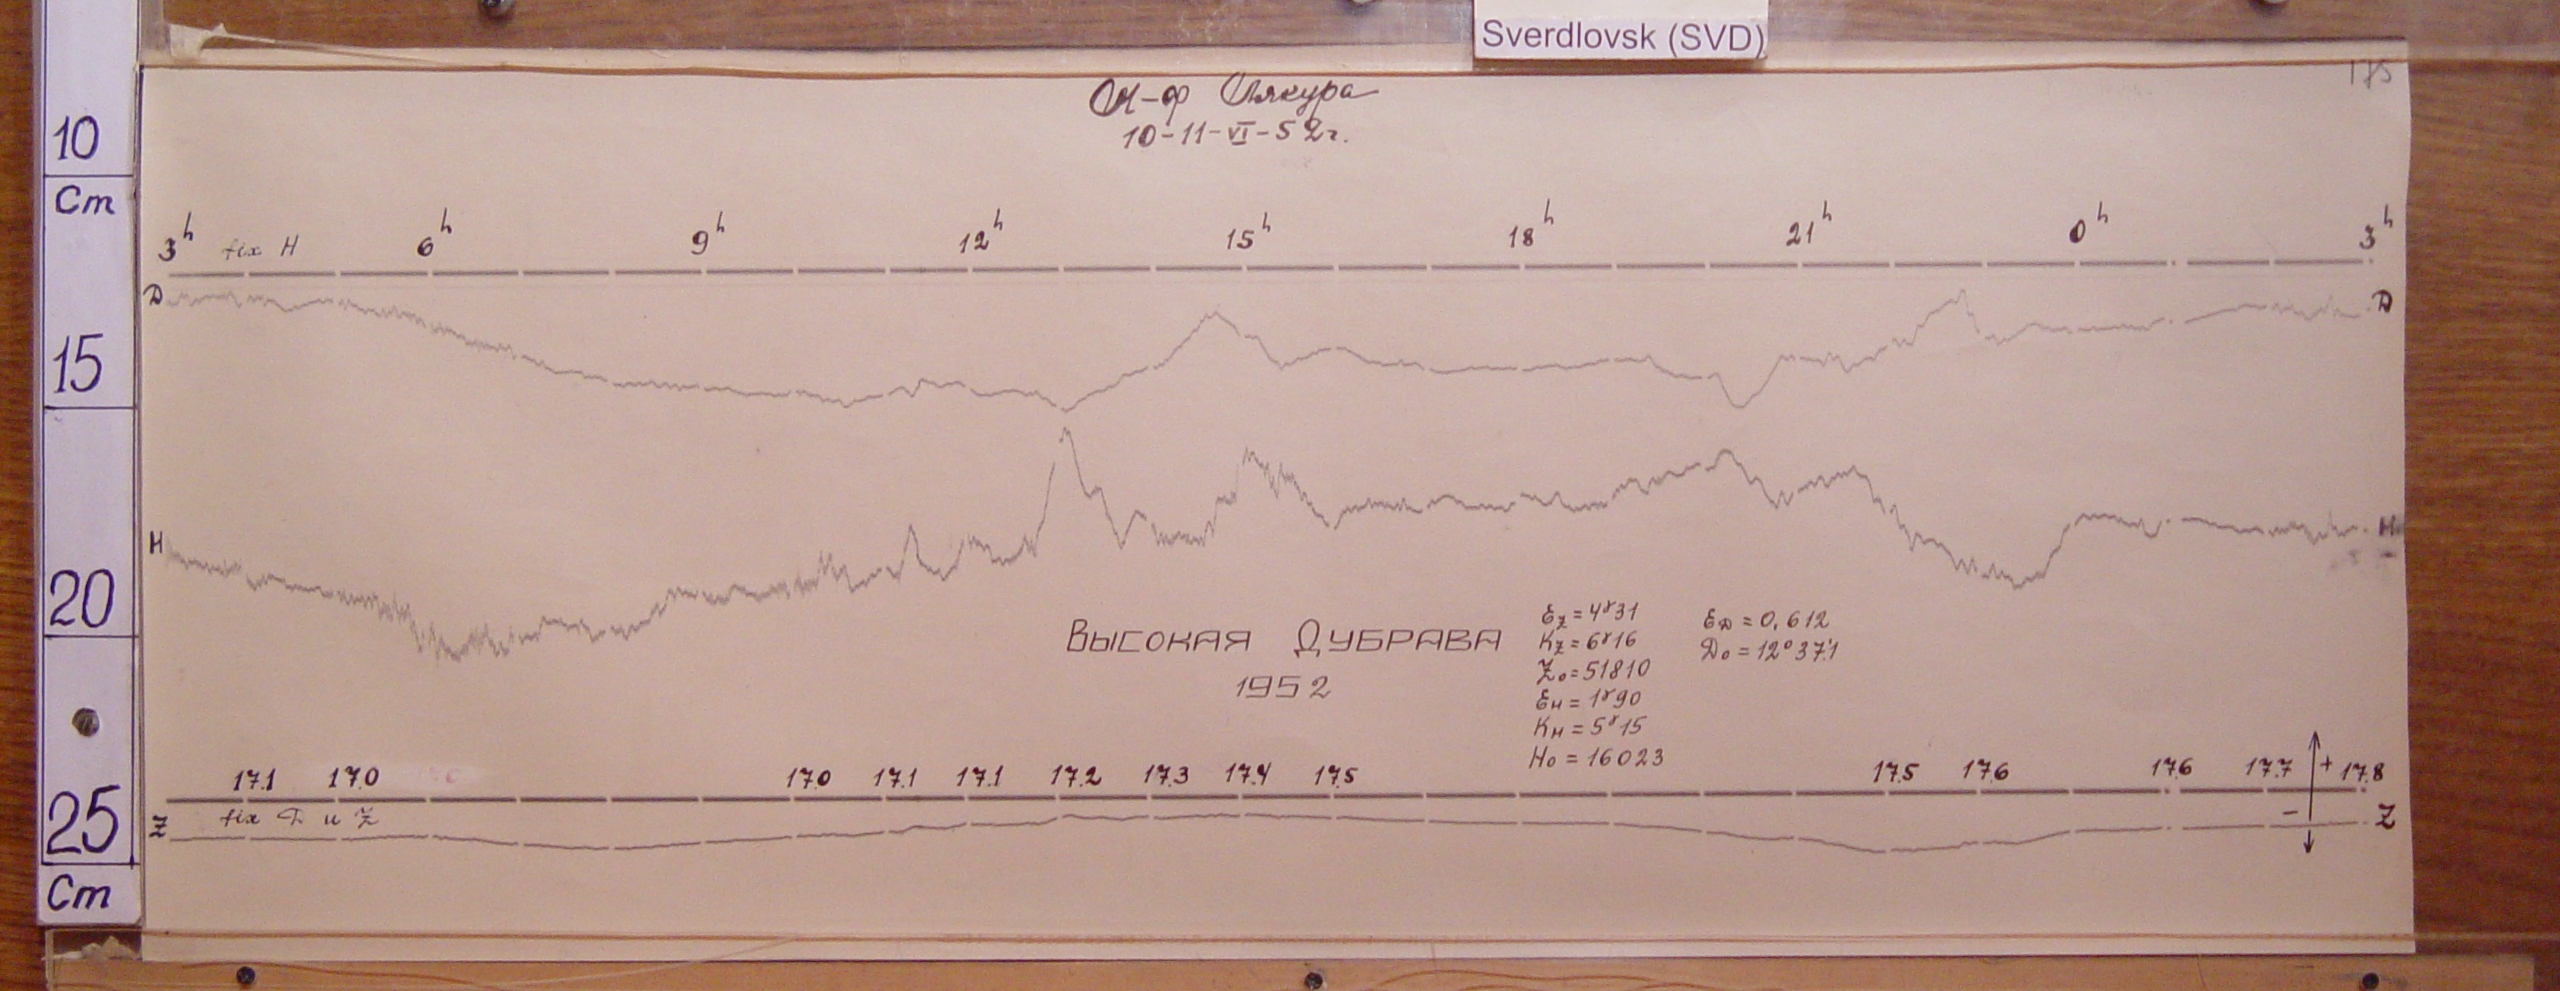 Sverdlovsk (SVD)
175
10
Cm
15
20
25
Cm
М-ф Пякура
10-11-VI-52г.
3h fix H 6h 9h 12h 15h 18h 21h 0h 3h
D D
H H
ВЫСОКАЯ ДУБРАВА
1952
Ez = 4γ31
Kz = 6γ16
Z0 = 51810
EH = 1γ90
KH = 5γ15
H0 = 16023
ED = 0,612
D0 = 12°37.'1
17.1 17.0 17.0 17.1 17.1 17.2 17.3 17.4 17.5 17.5 17.6 17.6 17.7 + 17.8
fix D и Z −
Z Z